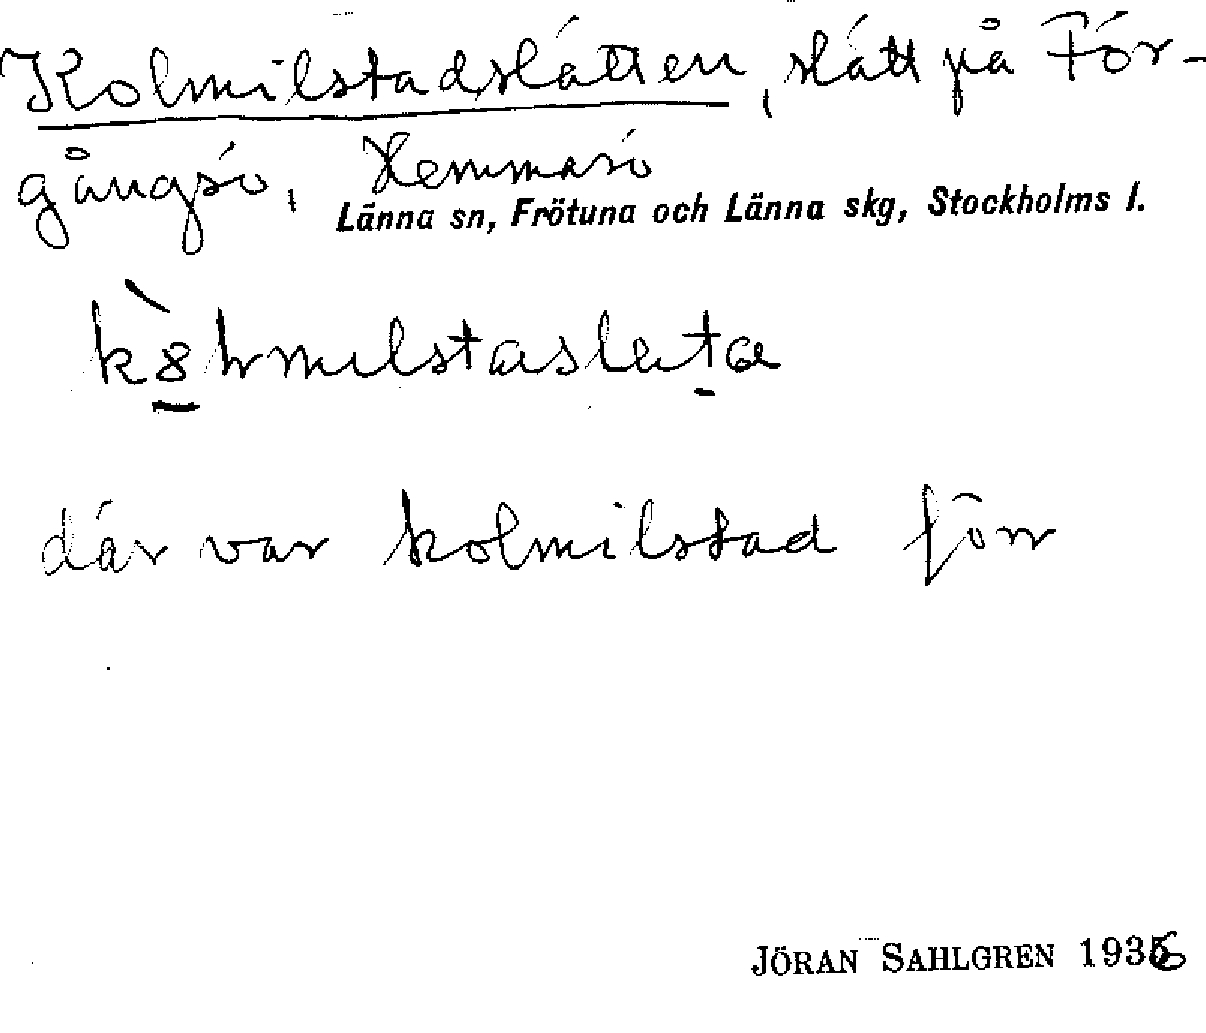 Kolmilstadslätten, slätt på För-
gångsö, Hemmarö
Länna sn, Frötuna och Länna skg, Stockholms l.
där var kolmilstad förr
JÖRAN SAHLGREN 1936